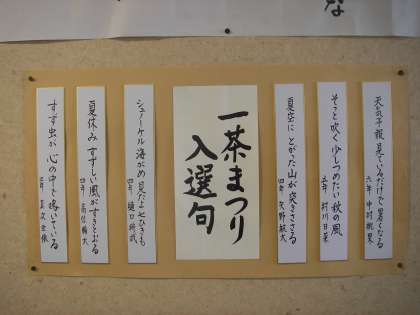 な
天気予報見ているだけで暑くなる
六年 中村
そっと吹く少しつめたい秋の風
五年 村川日菜
夏空にとがった山が突きささる
四年 矢野
一茶まつり
入選句
シュノーケル海がめ見たよ七ひきも
四年 樋口
夏休みすずしい風がすきとおる
四年
すず虫が心の中で鳴いている
三年